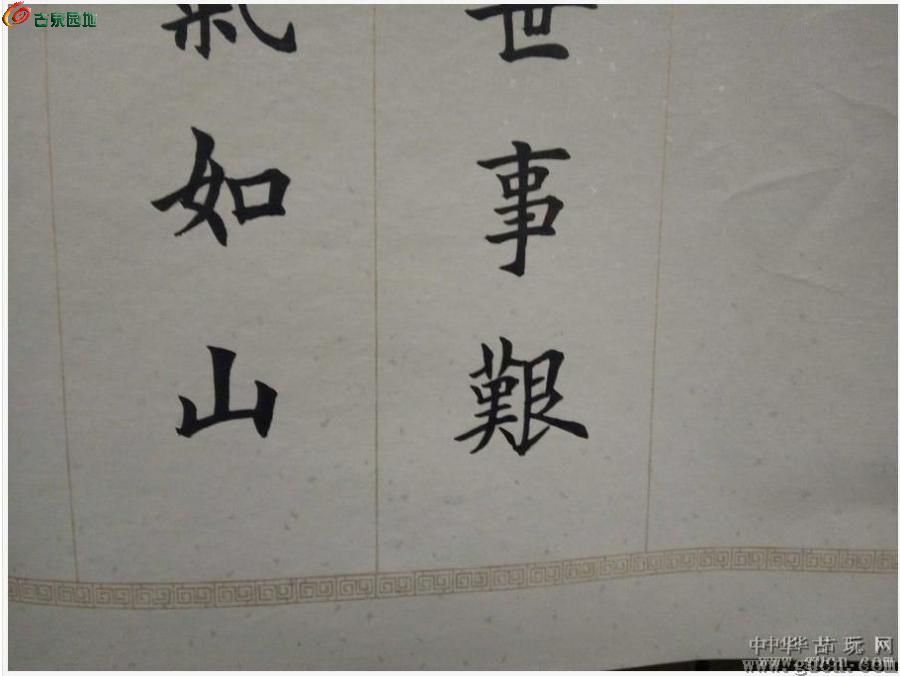 古泉园地
世事艰
氣如山
中中华华古玩网
www.gucn.com